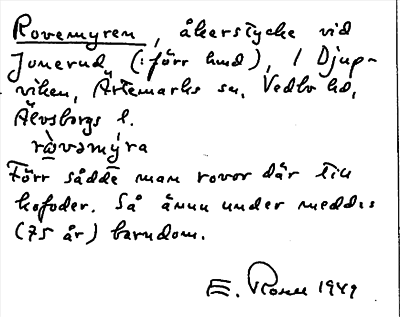 Rovemyren, åkerstycke vid
Jonerud, (: förr hmd), i Djup-
viken, Ärtemarks sn, Vedbo hd,
Älvsborgs l.
ròvəmýra
Förr sådde man rovor där till
kofoder. Så ännu under medd:s
(75 år) barndom.
E. Rosell 1949